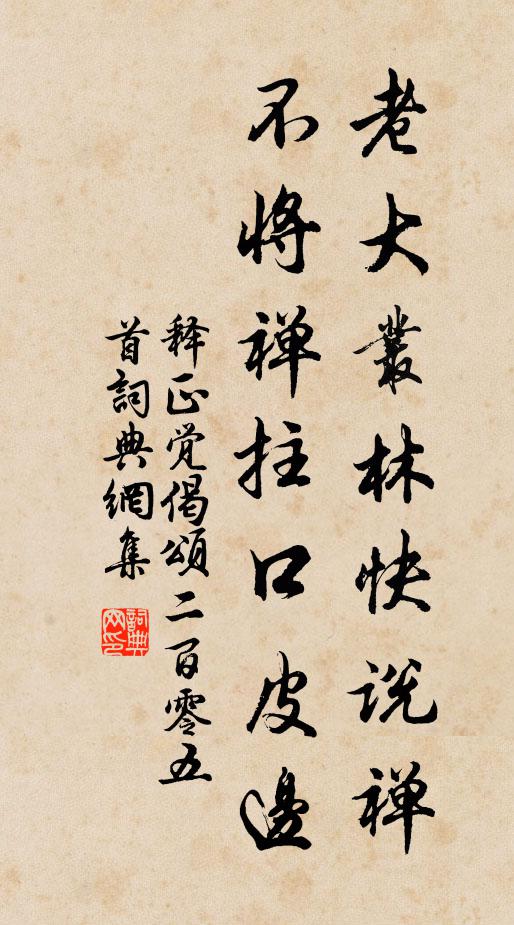 老大叢林快说禅
不将禅拄口皮邊
释正覚偈頌二百零五
首詞典網集
詞典网印